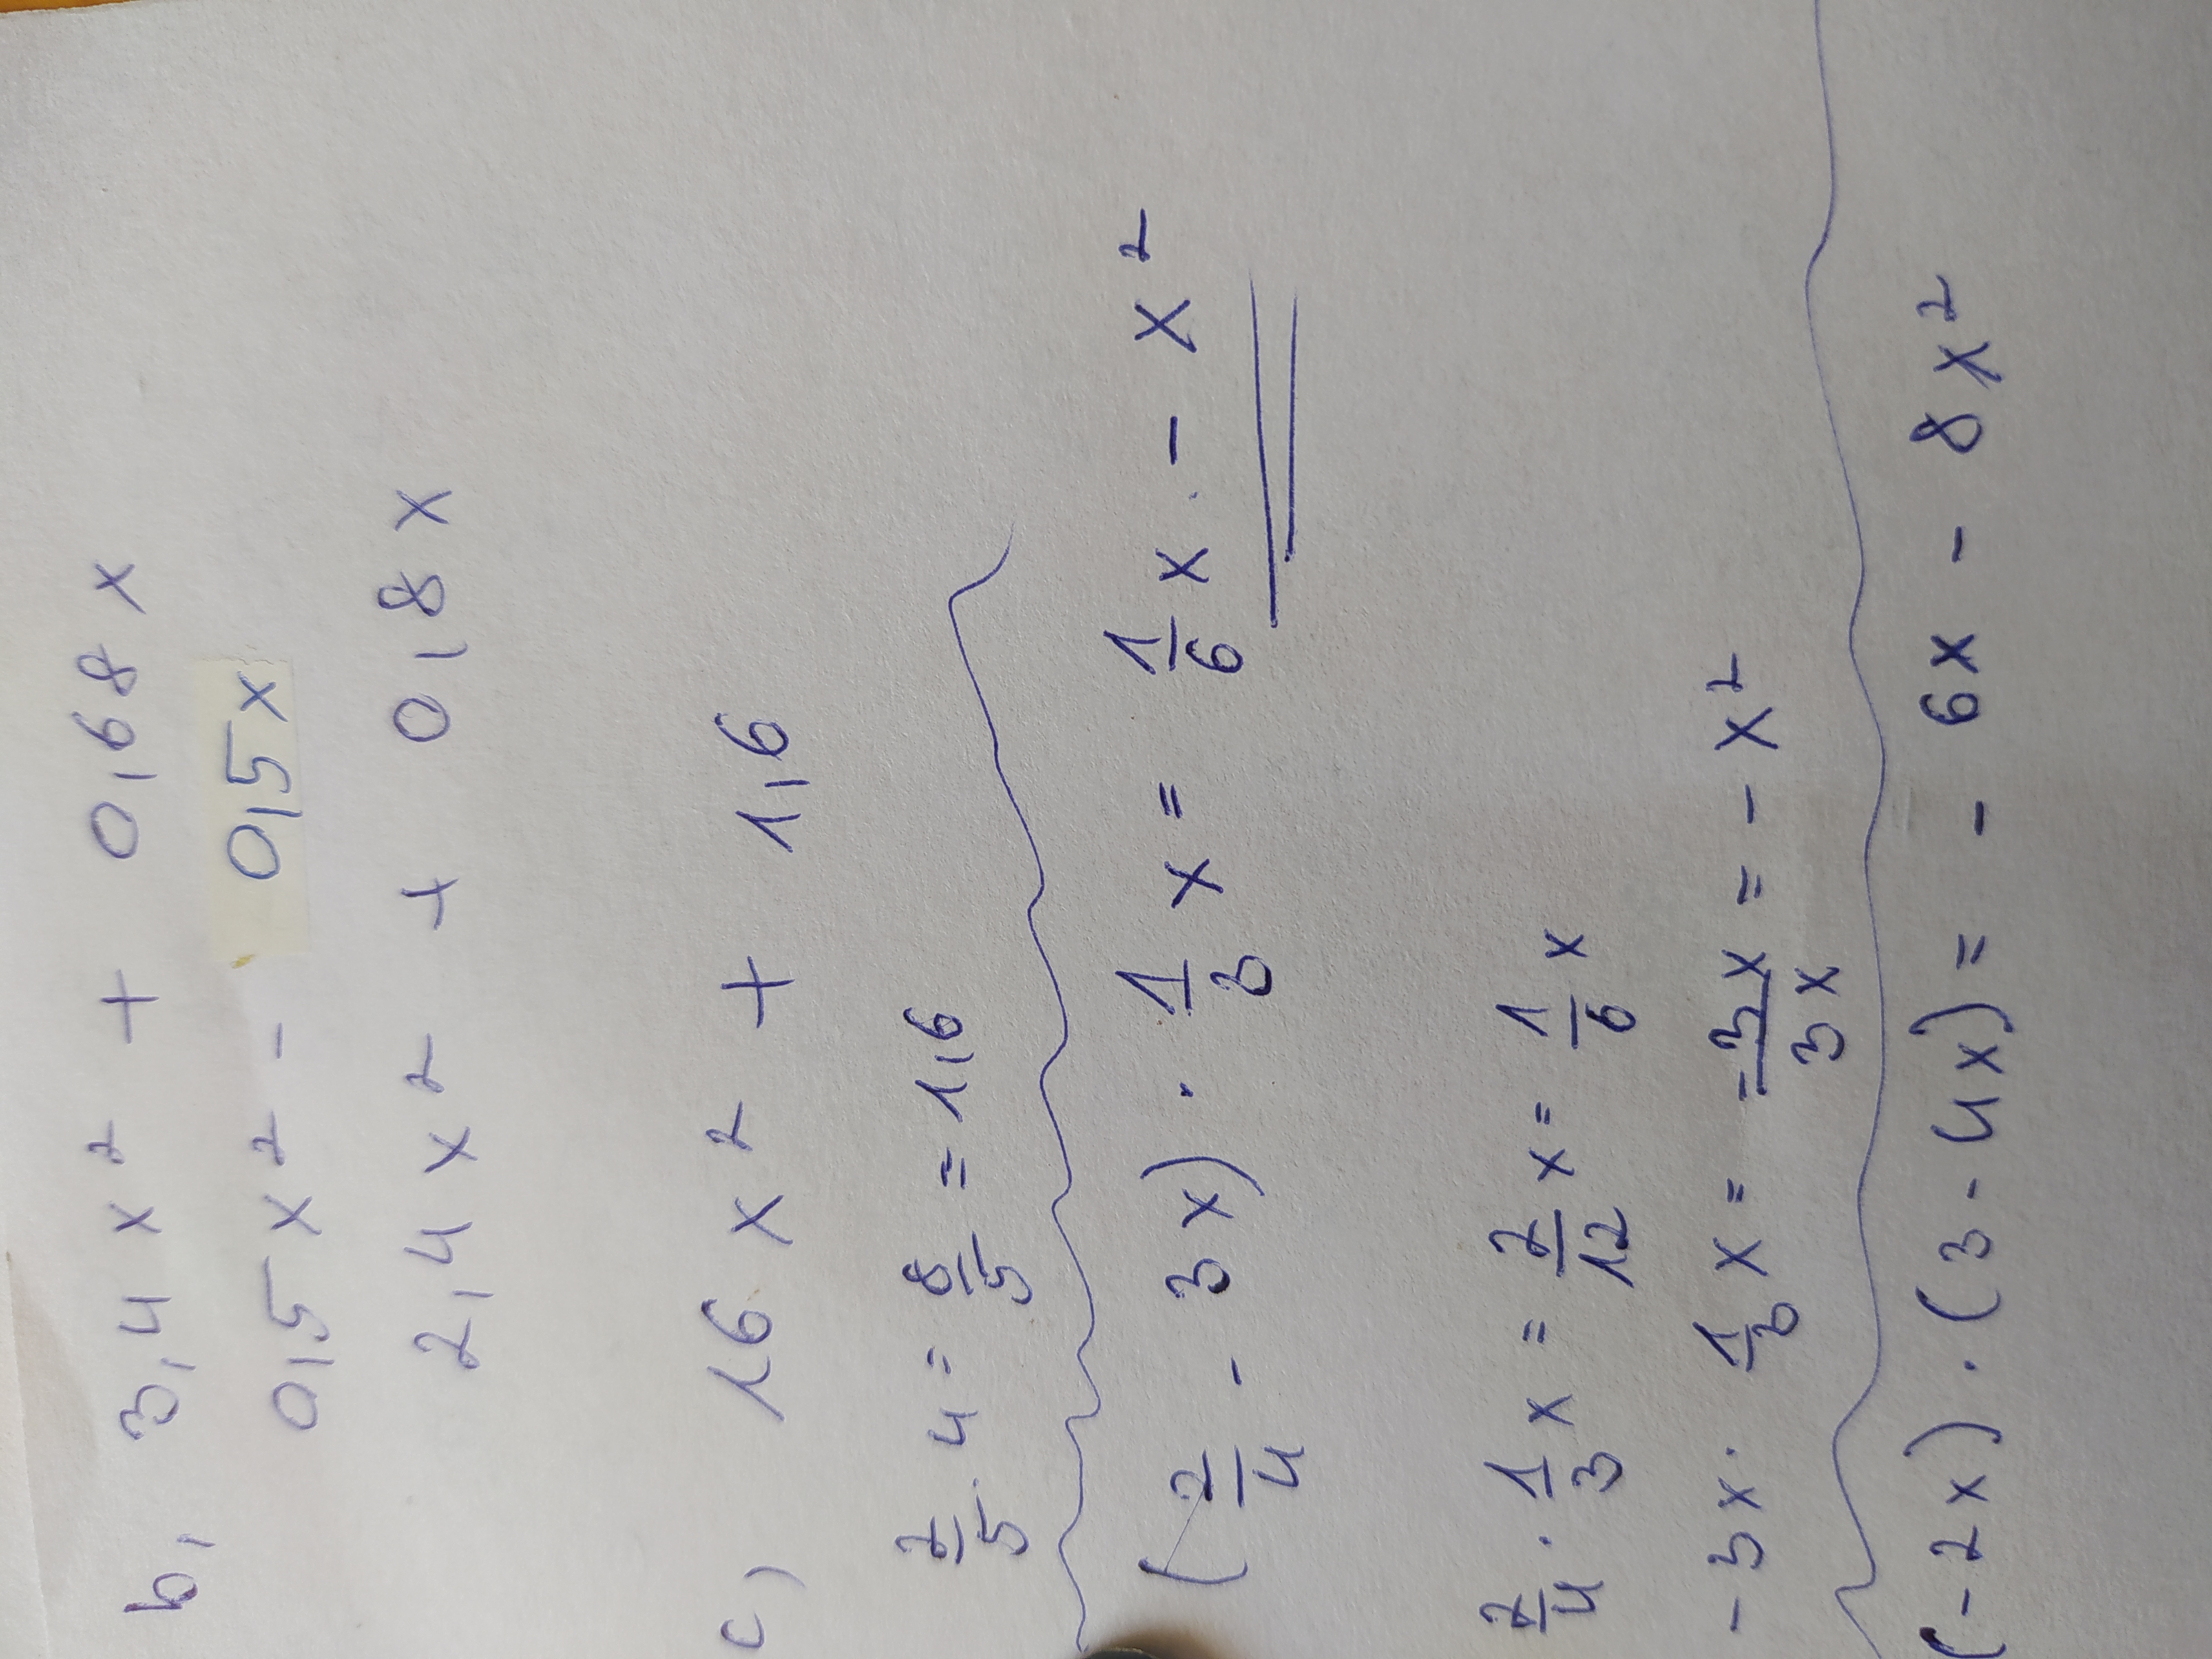 b, 3,4x² + 0,68x
0,5x² - 0,5x
2,4x² + 0,8x
c) 16x² + 1,6
2/5 · 4 = 8/5 = 1,6
(2/4 - 3x) · 1/3 x = 1/6 x - x²
2/4 · 1/3 x = 2/12 x = 1/6 x
-3x · 1/3 x = -3x/3x = -x²
(-2x) · (3-4x) = -6x - 8x²